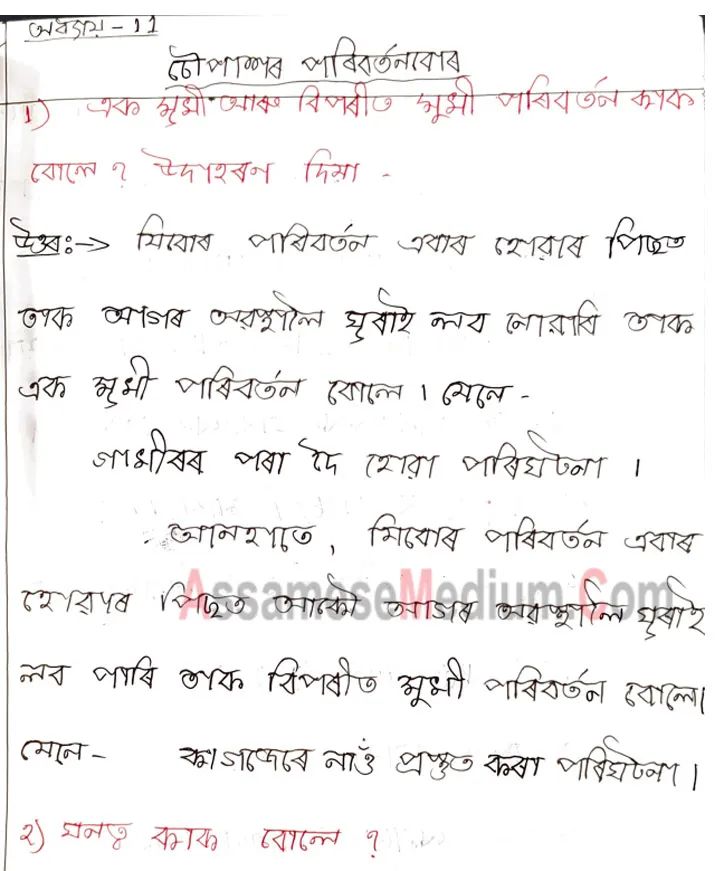 অধ্যায় - 11
চৌপাশৰ পৰিবৰ্তনবোৰ
1) এক মুখী আৰু বিপৰীত মুখী পৰিবৰ্তন কাক
বোলে ? উদাহৰণ দিয়া -
উত্তৰঃ→ যিবোৰ পৰিবৰ্তন এবাৰ হোৱাৰ পিছত
তাক আগৰ অৱস্থালৈ ঘূৰাই লব নোৱাৰি তাক
এক মুখী পৰিবৰ্তন বোলে । যেনে -
গাখীৰৰ পৰা দৈ হোৱা পৰিঘটনা ।
আনহাতে, যিবোৰ পৰিবৰ্তন এবাৰ
AssameseMedium.Com
হোৱাৰ পিছত আকৌ আগৰ অৱস্থালৈ ঘূৰাই
লব পাৰি তাক বিপৰীত মুখী পৰিবৰ্তন বোলে।
যেনে - কাগজেৰে নাওঁ প্ৰস্তুত কৰা পৰিঘটনা ।
২) ঘনত্ব কাক বোলে ?